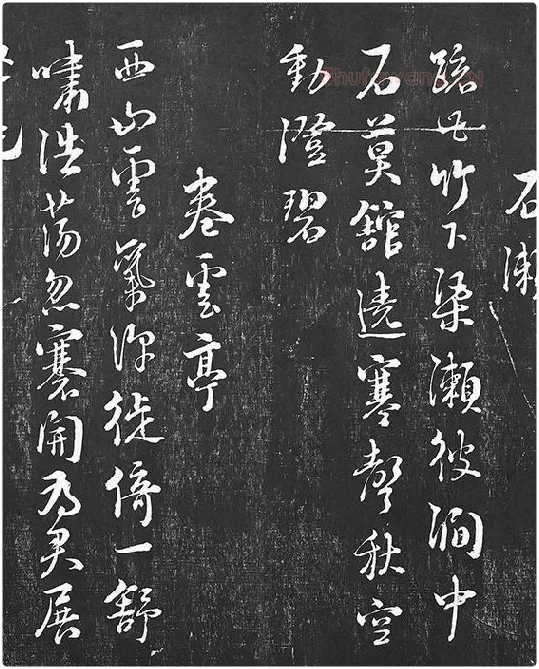 石瀨
疏此竹下渠瀨彼澗中
石莫舘遶寒聲秋空
動澄碧
卷雲亭
西山雲氣深徙倚一舒
嘯浩蕩忽褰開為君展